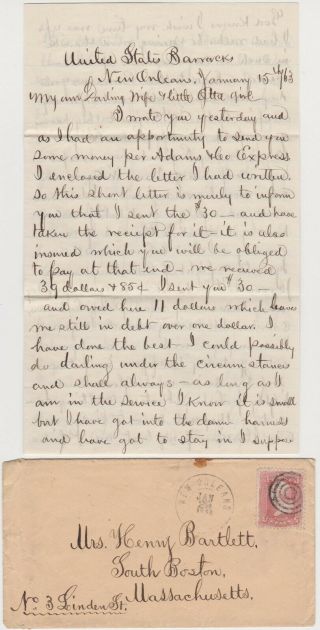 United States Barracks
New Orleans, January 15th/63
My own Darling Wife & little Etta girl
I wrote you yesterday and
as I had an opportunity to send you
some money per Adams & Co Express
I enclosed the letter I had written
so this short letter is merely to inform
you that I sent the $30 — and have
taken the reciept for it — it is also
insured which you will be obliged
to pay at that end — we received
39 dollars & 85¢ I sent you $30 —
and owed here 11 dollars which leave
me still in debt over one dollar. I
have done the best I could possibly
do darling under the circumstances
and shall always — as long as I
am in the service I know it is small
but I have got into the damn harness
and have got to stay in I suppose
NEW ORLEANS
JAN
Mrs. Henry Bartlett,
South Boston,
Massachusetts.
No. 3 Linden St.